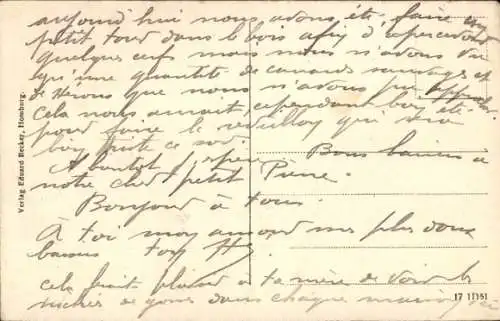 aujourd'hui nous avons été faire un
petit tour dans le bois afin d'apercevoir
quelques cerfs mais nous n'avons vu
qu'une quantité de canards sauvages et
de que nous n'avons pu
cela nous aurait cependant bien été
pour faire le réveillon qui sera
bien triste ce soir
A bientôt j'espère Bons baisers à
notre cher petit Pierre.
Bonjour à tous
À toi mon amour mes plus doux
baisers ton
cela fait plaisir à ta mère de voir les
de dans chaque
Verlag Eduard Becker, Homburg.
17 11151